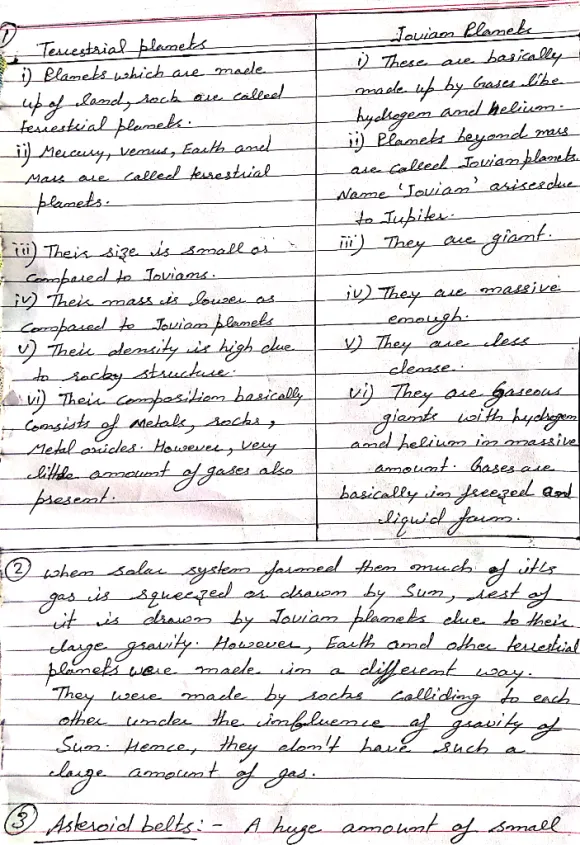 ①
Terrestrial planets
i) Planets which are made
up of land, rock are called
terrestrial planets.
ii) Mercury, venus, Earth and
Mars are called terrestrial
planets.
iii) Their size is small as
compared to Jovians.
iv) Their mass is lower as
compared to Jovian planets
v) Their density is high due
to rocky structure.
vi) Their composition basically
consists of Metals, rocks,
Metal oxicles. However, very
little amount of gases also
present.
Jovian Planets
i) These are basically
made up by Gases like
hydrogen and helium.
ii) Planets beyond mars
are called Jovian planets.
Name 'Jovian' arises due
to Jupiter.
iii) They are giant.
iv) They are massive
enough.
v) They are less
dense.
vi) They are Gaseous
giants with hydrogen
and helium in massive
amount. Gases are
basically in freezed and
liquid form.
② when solar system formed then much of it's
gas is squeezed or drawn by Sun, rest of
it is drawn by Jovian planets due to their
large gravity. However, Earth and other terrestrial
planets were made in a different way.
They were made by rocks colliding to each
other under the influence of gravity of
Sun. Hence, they don't have such a
large amount of gas.
③ Asteroid belts:- A huge amount of small